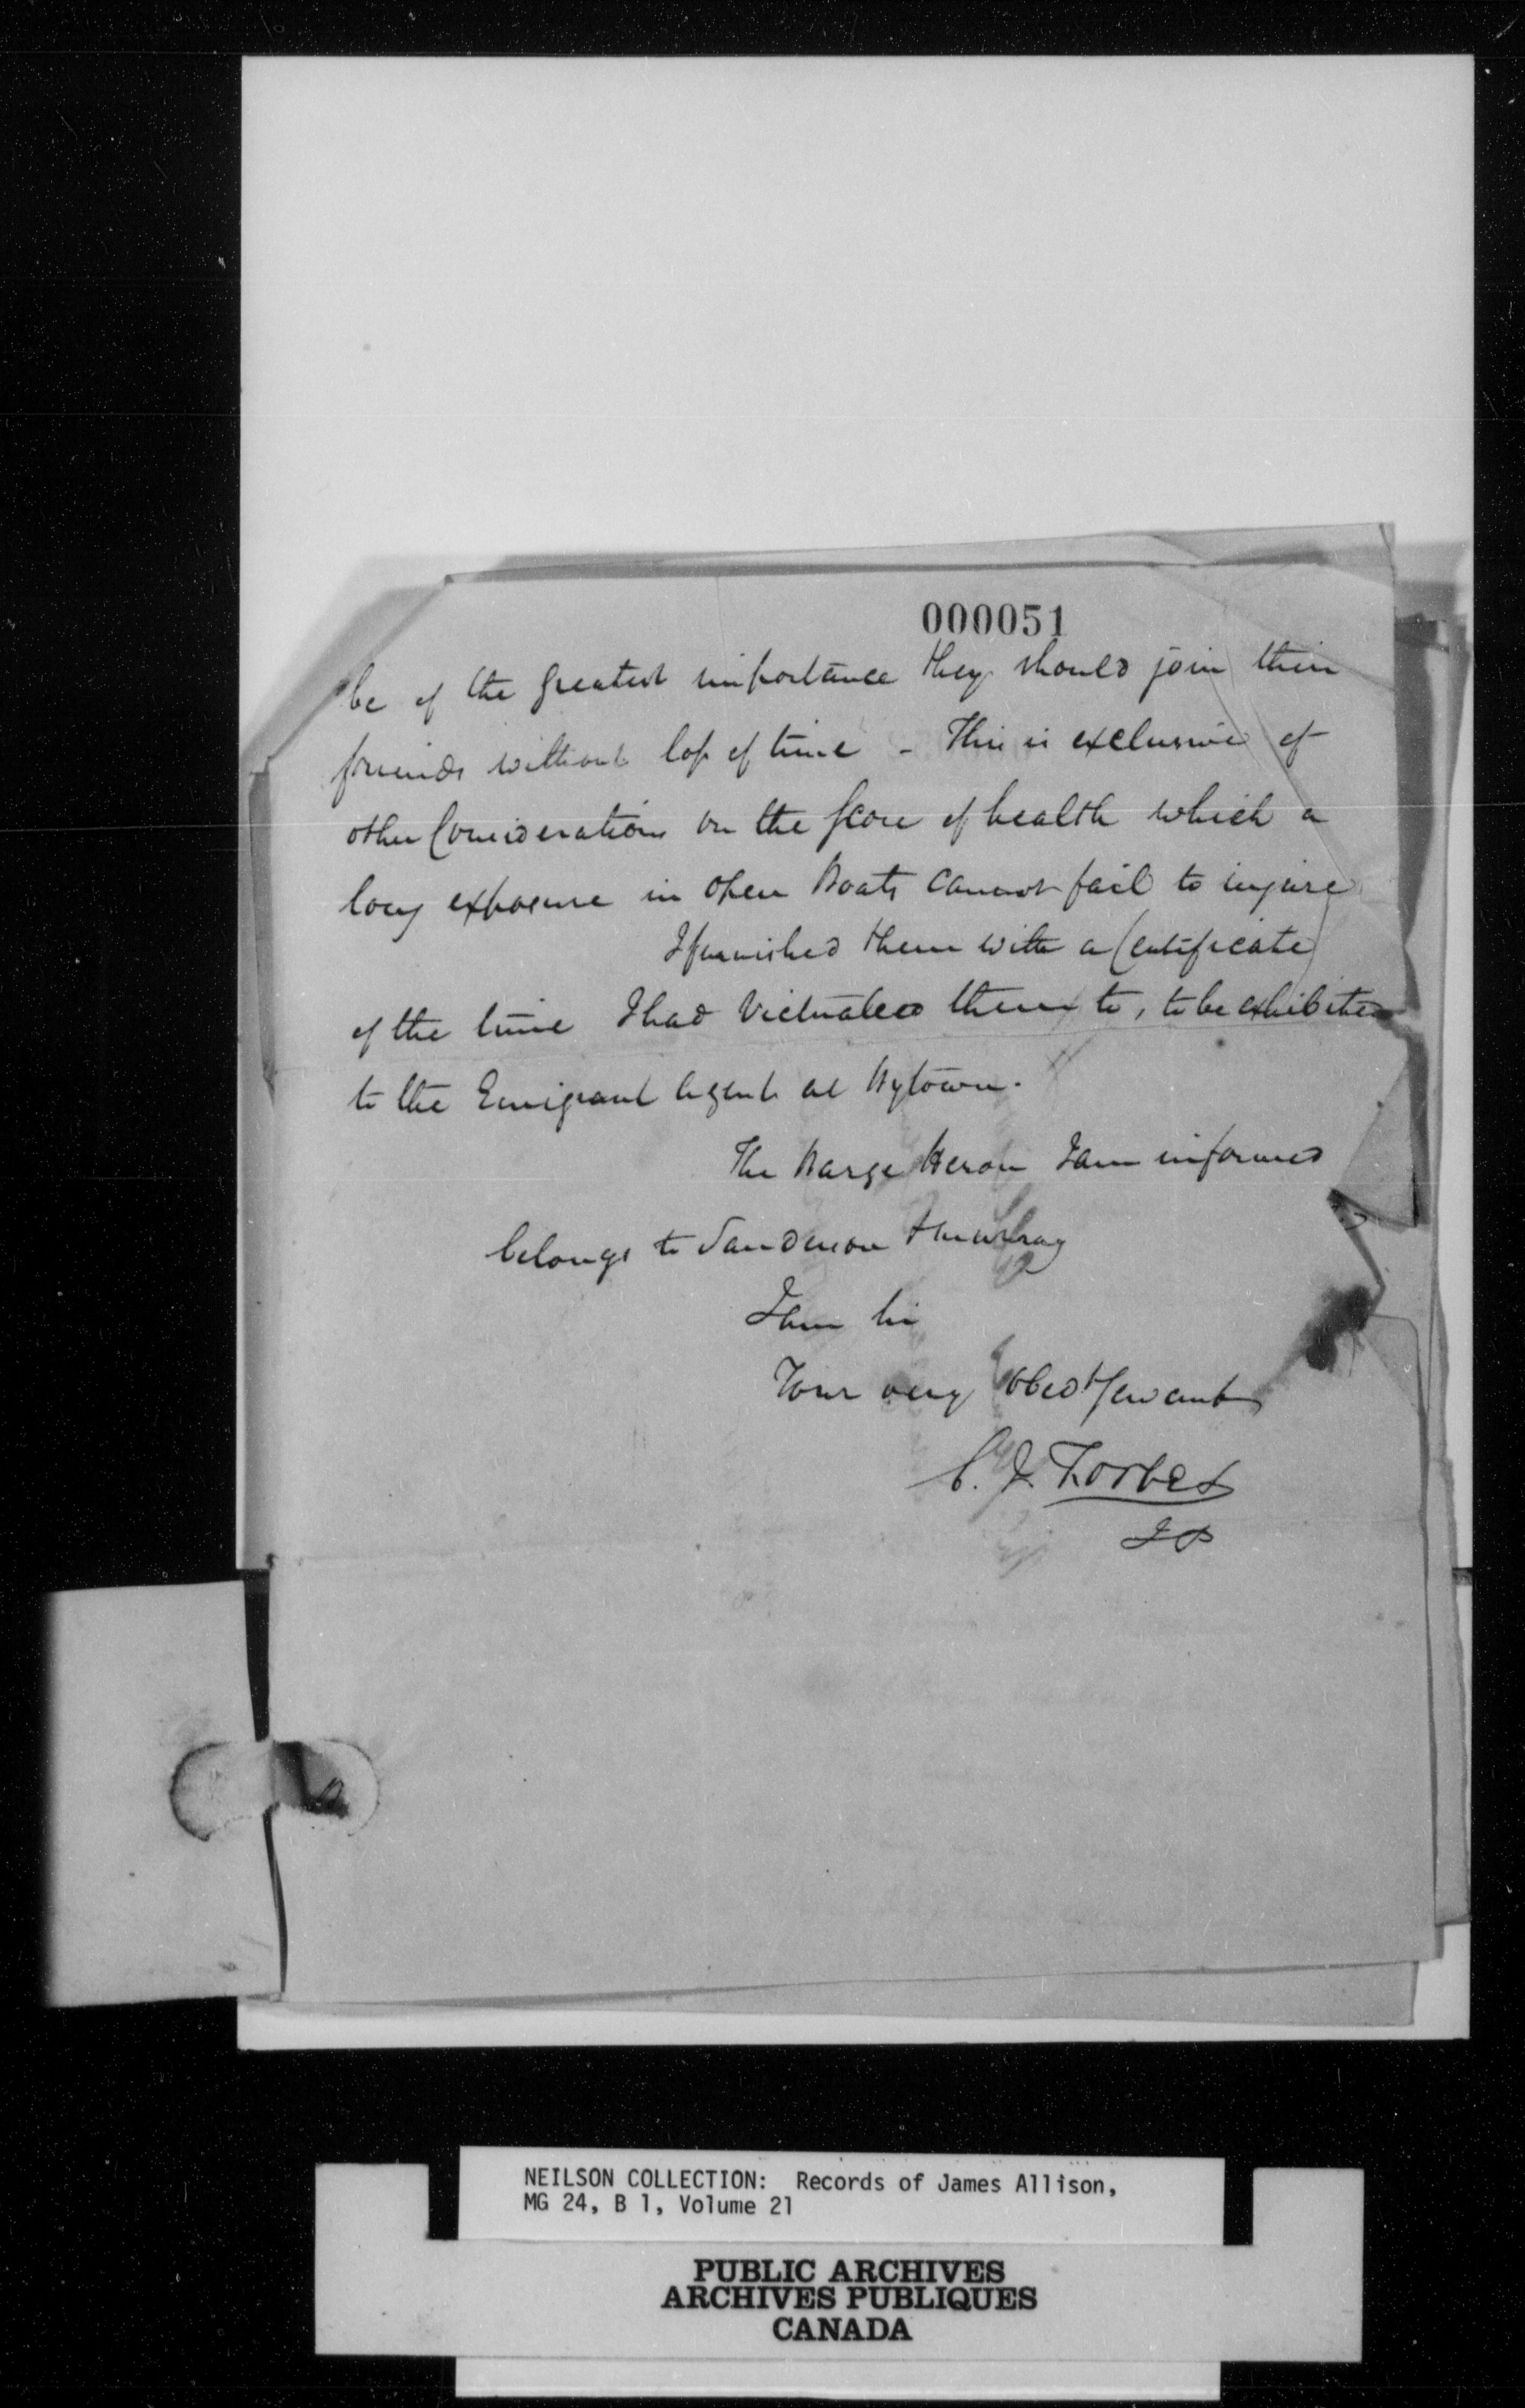 000051
be of the greatest importance they should join their
friends without loss of time - This is exclusive of
other Considerations on the score of health which a
long exposure in open Boats cannot fail to injure
I furnished them with a Certificate
of the time I had Victualled them to, to be exhibited
to the Emigrant Agent at Bytown.
The Barge Heron I am informed
belongs to Sanderson & Murray
I am Sir
Your very Obedt Servant
C. J. Forbes
JP
NEILSON COLLECTION: Records of James Allison,
MG 24, B 1, Volume 21
PUBLIC ARCHIVES
ARCHIVES PUBLIQUES
CANADA